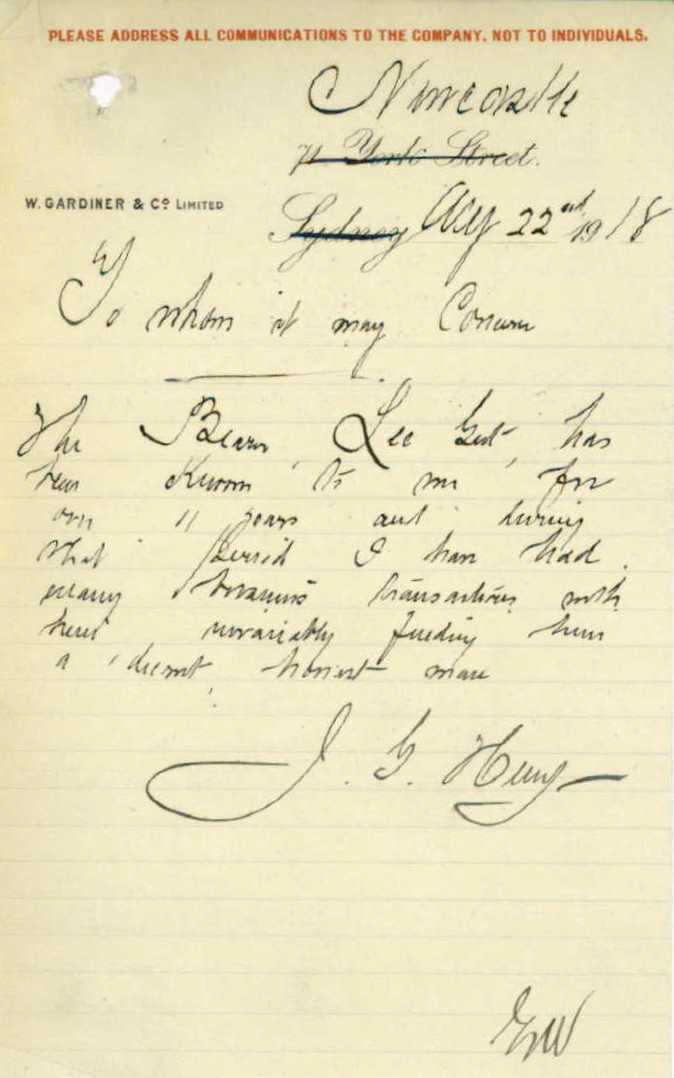 PLEASE ADDRESS ALL COMMUNICATIONS TO THE COMPANY. NOT TO INDIVIDUALS.
Newcastle
71 York Street.
W. GARDINER & Co LIMITED
Sydney Aug 22nd 1918
To whom it may Concern
The Bearer, Lee, has
been Known to me for
over 11 years and during
that Period I have had
many business transactions with
him invariably finding him
a decent honest man
J. G.